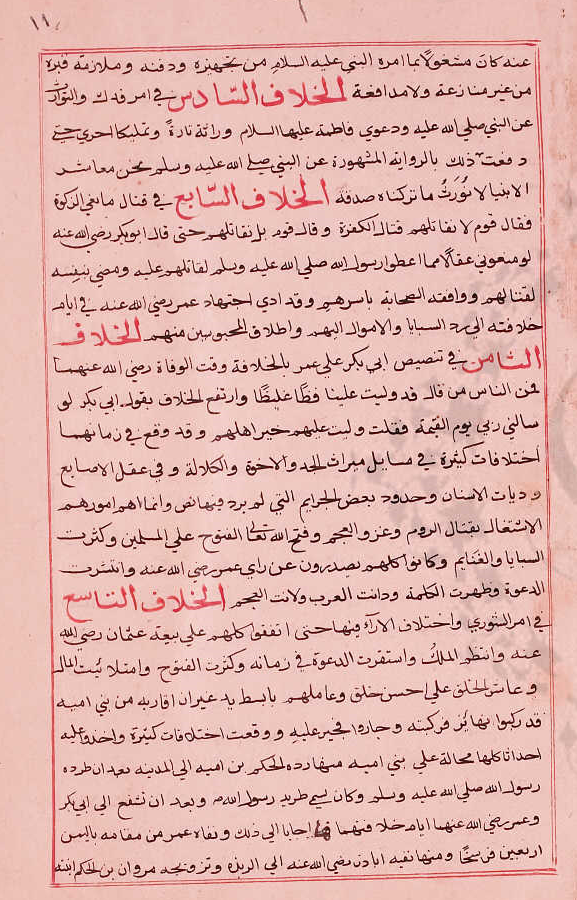 ١١٠
عنه كان مشغولا بما امره النبي عليه السلام من تجهيزه ودفنه وملازمة قبره
من غير منازعة ولا مدافعة الخلاف السادس في امر فدك والتوارث
عن النبي صلي الله عليه ودعوي فاطمة عليها السلام وراثة تارة وتمليكا اخري حتي
دفعت ذلك بالرواية المشهورة عن النبي صلي الله عليه وسلم نحن معاشر
الانبيا لا نورث ما تركناه صدقة الخلاف السابع في قتال مانعي الزكوة
فقال قوم لا نقاتلهم قتال الكفرة وقال قوم بل نقاتلهم حتي قال ابو بكر رضي الله عنه
لو منعوني عقالا مما اعطوا رسول الله صلي الله عليه وسلم لقاتلهم عليه ومضي بنفسه
لقتالهم ووافقته الصحابة باسرهم وقد ادي اجتهاد عمر رضي الله عنه في ايام
خلافته الي رد السبايا والاموال اليهم واطلاق المحبوسين منهم الخلاف
الثامن في تنصيص ابي بكر علي عمر بالخلافة وقت الوفاة رضي الله عنهما
فمن الناس من قال قد وليت علينا فظا غليظا وارتفع الخلاف بقول ابي بكر لو
سالني ربي يوم القيمة فقلت وليت عليهم خير اهلهم وقد وقع في زمانهما
اختلافات كثيرة في مسايل ميراث الجد والاخوة والكلالة وفي عقل الاصابع
وديات الاسنان وحدود بعض الجرايم التي لم يرد فيها نص وانما اهم امورهم
الاشتغال بقتال الروم وغزو العجم وفتح الله تعالى الفتوح علي المسلمين وكثرت
السبايا والغنايم وكانوا كلهم يصدرون عن راي عمر رضي الله عنه وانتشرت
الدعوة وظهرت الكلمة ودانت العرب ولانت العجم الخلاف التاسع
في امر الشوري واختلاف الآراء فيها حتى اتفقوا كلهم علي بيعة عثمان رضي الله
عنه وانتظم الملك واستقرت الدعوة في زمانه وكثرت الفتوح وامتلا بيت المال
وعاش الخلق علي احسن خلق وعاملهم بابسط يد غير ان اقاربه من بني اميه
قد ركبوا نهابر فركبته وجاروا فجير عليه ووقعت اختلافات كثيرة واخذوا عليه
احداثا كلها محالة علي بني اميه منها رده الحكم بن اميه الي المدينه بعد ان طرده
رسول الله صلي الله عليه وسلم وكان يسمي طريد رسول الله وبعد ان تشفع الي ابي بكر
وعمر رضي الله عنهما ايام خلافتهما فما اجابا الي ذلك ونفاه عمر من مقامه باليمن
اربعين فرسخا ومنها نفيه اباذر رضي الله عنه الي الربذة وتزويجه مروان بن الحكم ابنته